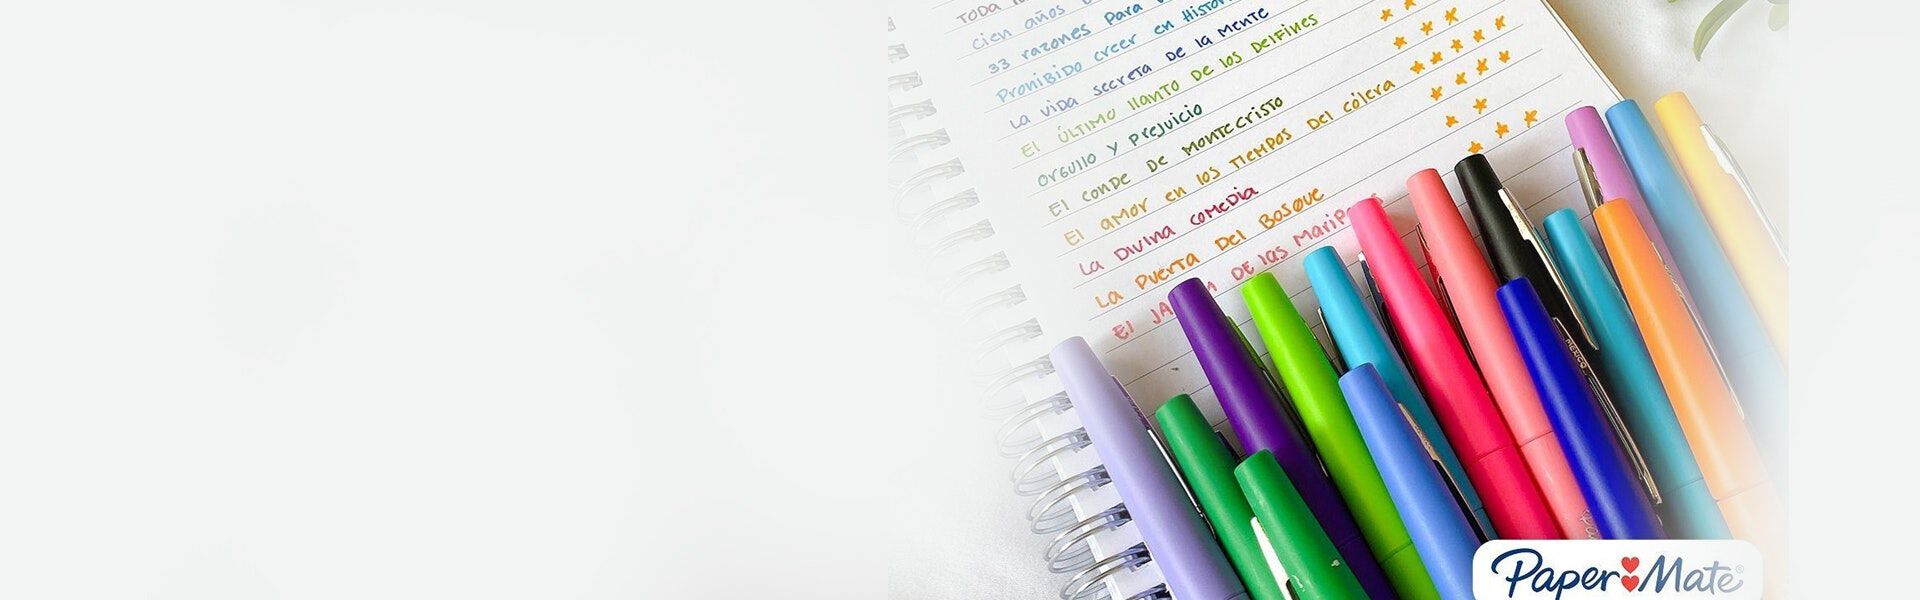 Toda
cien años
33 razones para
Prohibido creer en Histor
La vida secreta de la mente
El último llanto de los Delfines
Orgullo y prejuicio
El conde de Montecristo
El amor en los tiempos del cólera
La Divina comedia
La puerta del Bosque
El JA de las Marip
MEXICO
Paper Mate®